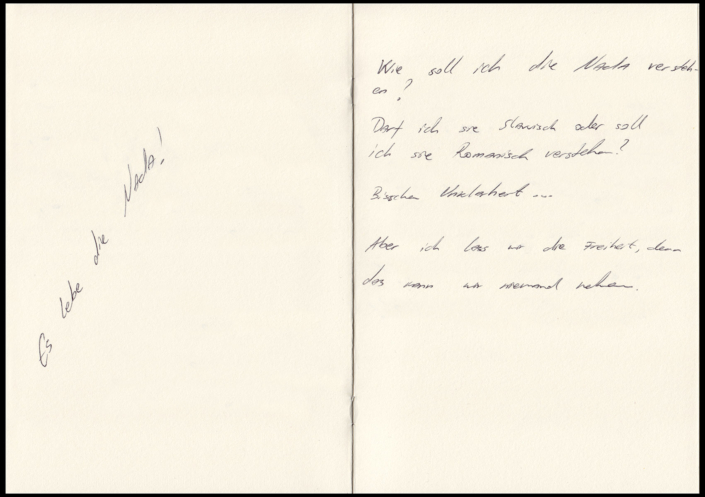 Es lebe die Nada!
Wie soll ich die Nada versteh-
en?
Darf ich sie Slawisch oder soll
ich sie Romanisch verstehen?
Bisschen Unklarheit ...
Aber ich lass mir die Freiheit, denn
das kann mir niemand nehmen.